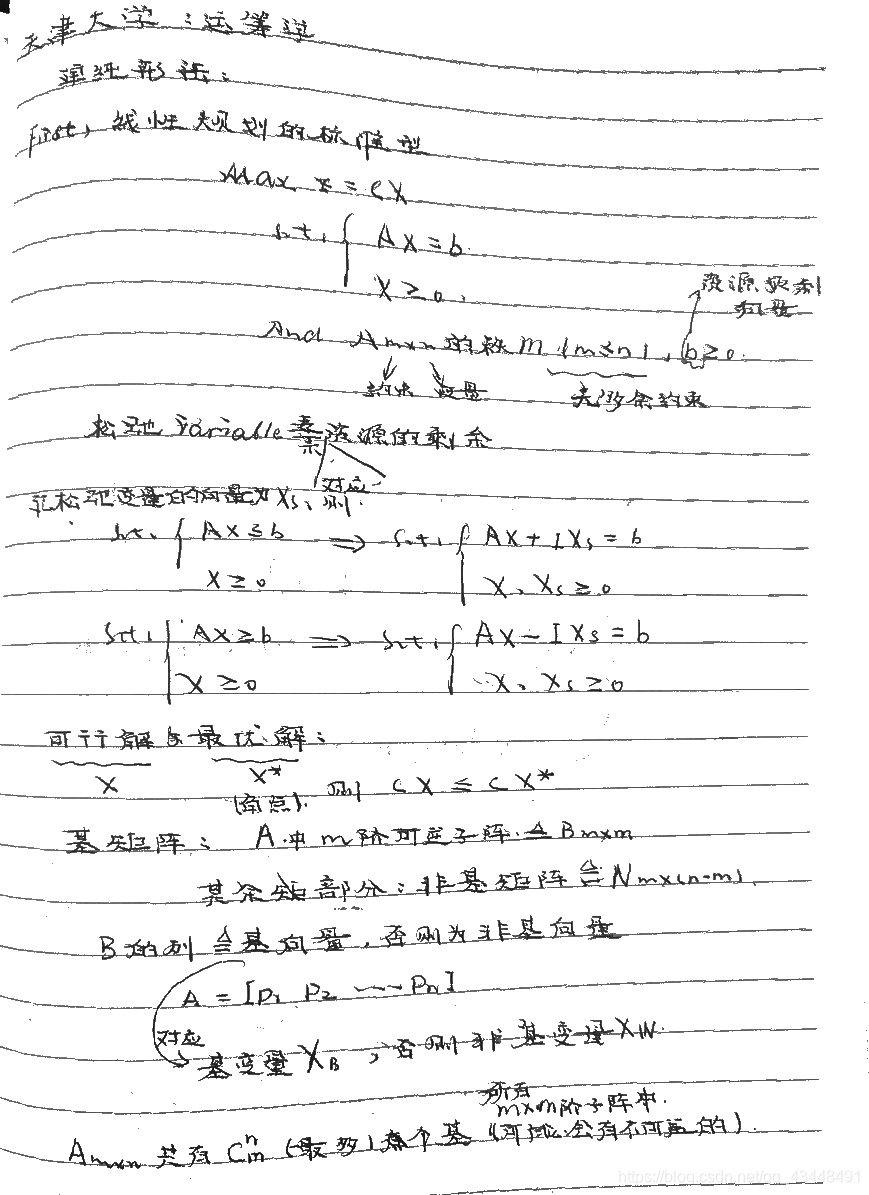 天津大学：运筹学
单纯形法：
First, 线性规划的标准型
Max z = CX
s.t. { AX = b
X ≥ 0,
资源限制
向量
And Am×n的秩m (m≤n), b≥0.
约束 变量
去多余约束
松弛 Variable 表示资源的剩余
对应
记松弛变量的向量为Xs、则
s.t. { AX ≤ b ⇒ s.t. { AX + IXs = b
X ≥ 0 X、Xs ≥ 0
s.t. { AX ≥ b ⇒ s.t. { AX − IXs = b
X ≥ 0 X、Xs ≥ 0
可行解与最优解：
X X*
则 CX ≤ CX*
基矩阵： A中m阶可逆子阵 ≜ Bm×m
其余部分：非基矩阵 ≜ Nm×(n-m)
B的列≜基向量，否则为非基向量
A = [P1 P2 ---- Pn]
对应
基变量XB，否则非基变量XN.
所有
m×m阶子阵中.
Am×n 共有 C_m^n (最多) 个基 (可能会有不可逆的).
https://blog.csdn.net/qq_43448491